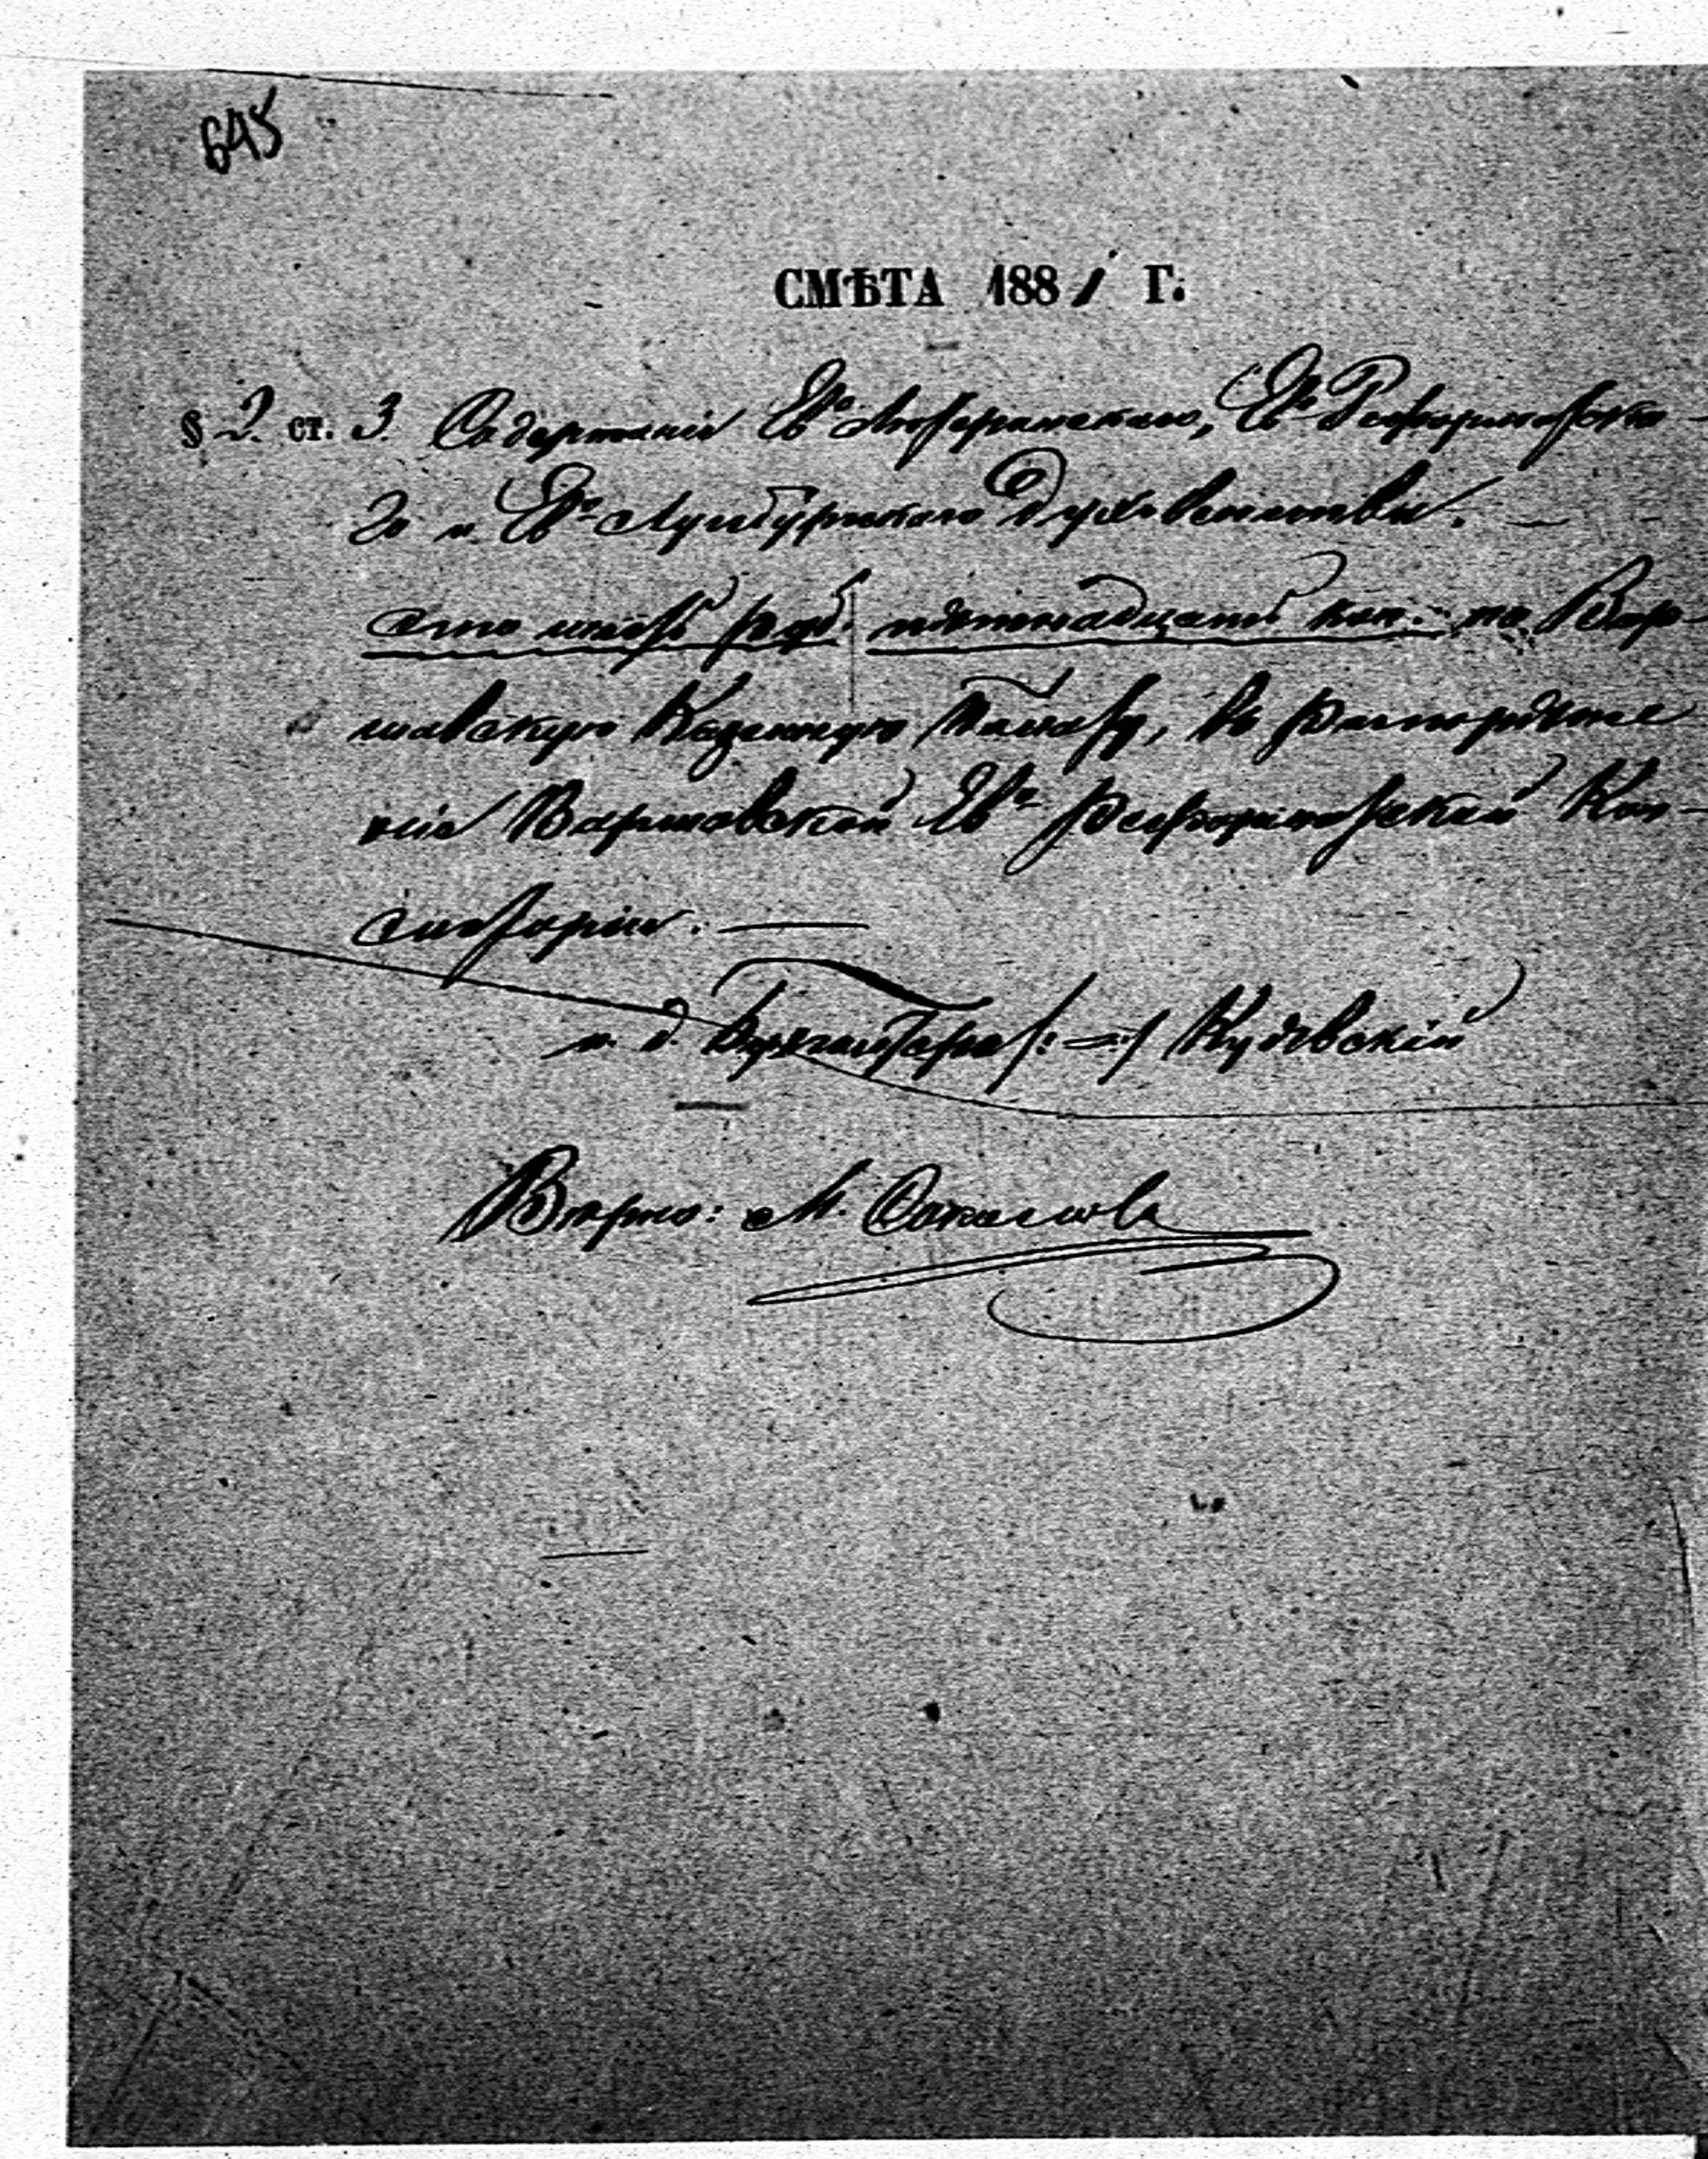 645
СМѢТА 1881 Г.
§ 2. ст. 3. Содержаніе Ев. Лютеранскаго, Ев. Реформатска-
го и Ев. Аугсбургскаго Духовенства. —
сто шесть руб. пятнадцать коп. по Вар-
шавскую Казенную Палату, въ распоряже
ніе Варшавской Ев. Реформатской Кон-
систоріи. —
и. д. Бухгалтера /:—:/ Кудевскій
Вѣрно: М.